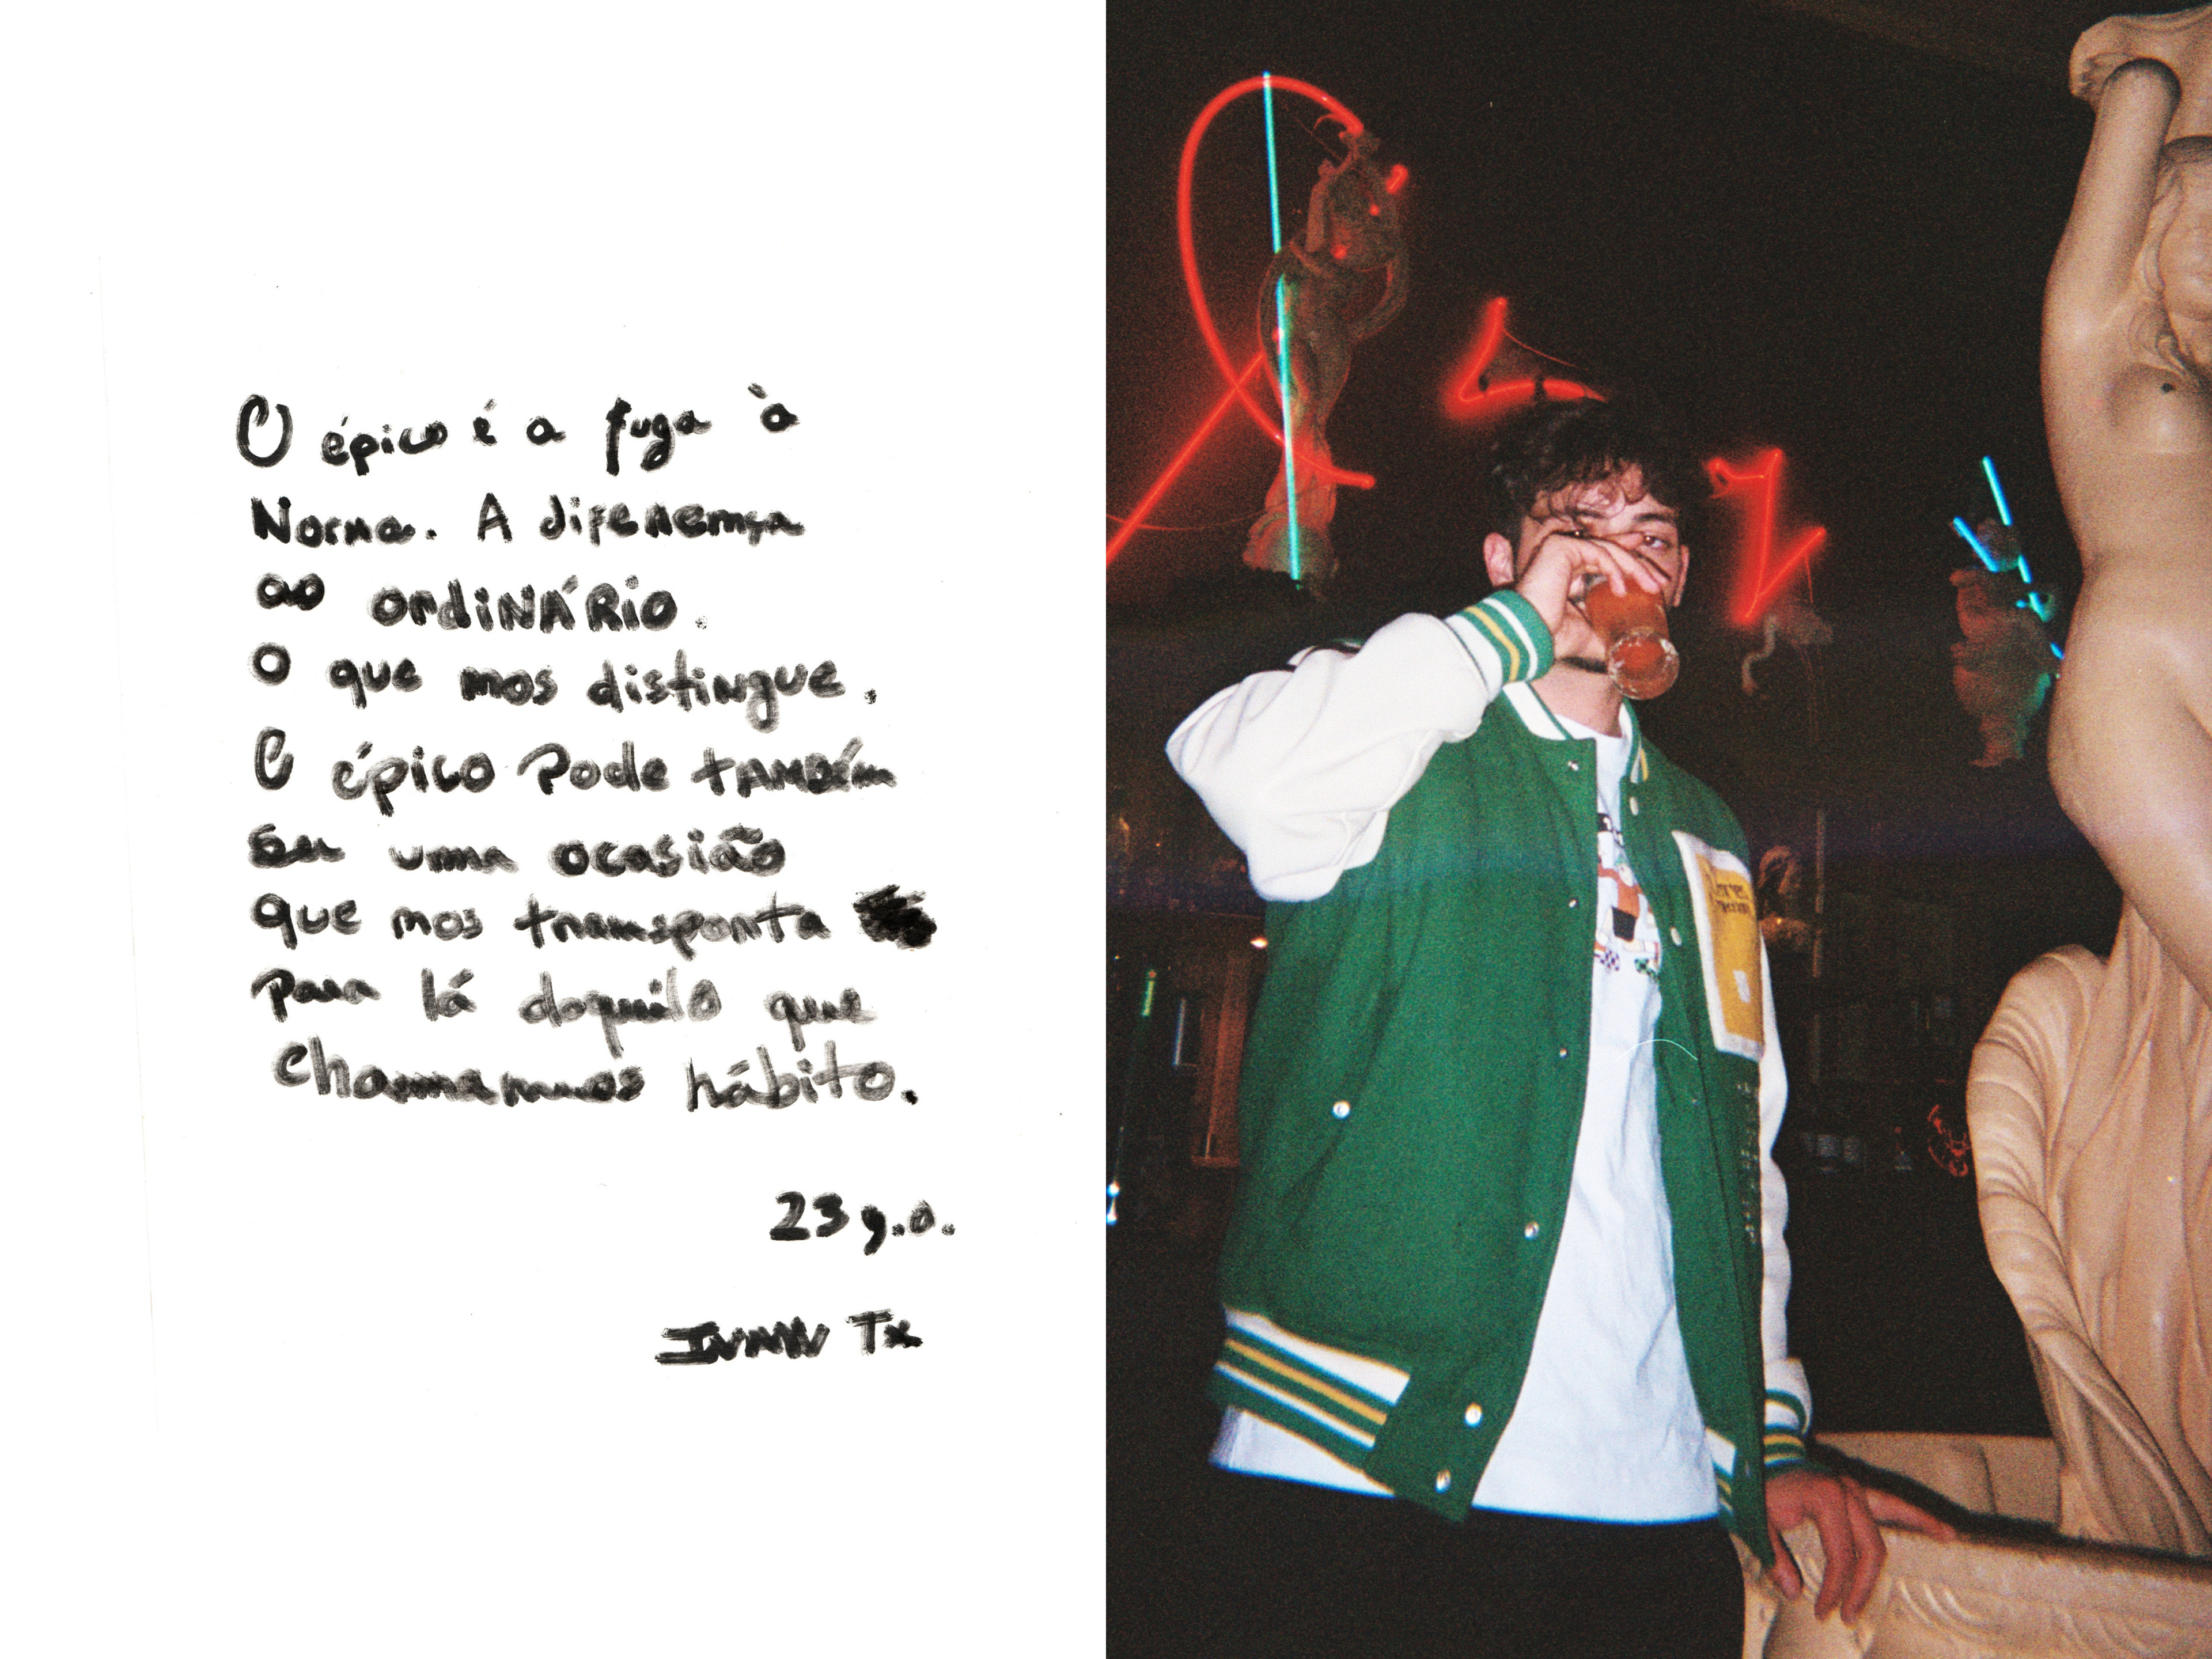 O épico é a fuga à
Norma. A diferença
ao ordiNÁRio.
O que nos distingue.
O épico Pode tAMbém
ser uma ocasião
que nos transporta
para lá daquilo que
chamamos hábito.
23 y.o.
IVAN Tx